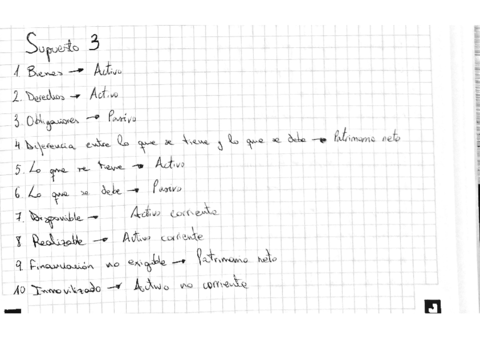 Supuesto 3
1. Bienes → Activo
2. Derechos → Activo
3. Obligaciones → Pasivo
4. Diferencia entre lo que se tiene y lo que se debe → Patrimonio neto
5. Lo que se tiene → Activo
6. Lo que se debe → Pasivo
7. Disponible → Activo corriente
8. Realizable → Activo corriente
9. Financiación no exigible → Patrimonio neto
10. Inmovilizado → Activo no corriente